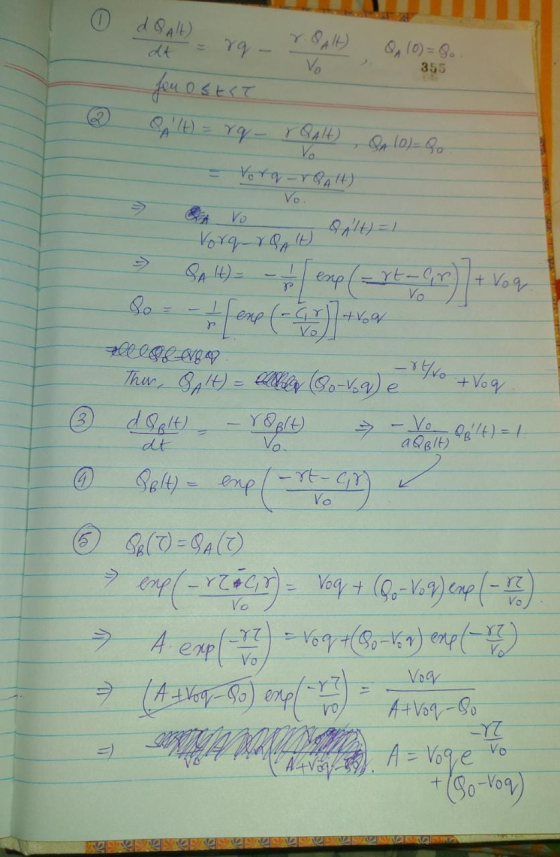 ① dQ_A(t)/dt = rq - r.Q_A(t)/V₀ , Q_A(0)=Q₀
355
for 0 ≤ t < τ
② Q_A'(t) = rq - rQ_A(t)/V₀ , Q_A(0)=Q₀
= V₀rq-rQ_A(t)/V₀.
⇒ V₀/V₀rq-rQ_A(t) Q_A'(t)=1
⇒ Q_A(t) = -1/r [exp(-rt-C₁r/V₀)] + V₀q
Q₀ = -1/r [exp(-C₁r/V₀)] +V₀q
Thus, Q_A(t) = (Q₀-V₀q) e^(-rt/V₀) + V₀q
③ dQ_B(t)/dt = -rQ_B(t)/V₀. ⇒ -V₀/aQ_B(t) Q_B'(t)=1
④ Q_B(t) = exp(-rt-C₁r/V₀)
⑤ Q_B(τ)=Q_A(τ)
⇒ exp(-rτ-C₁r/V₀) = V₀q + (Q₀-V₀q)exp(-rτ/V₀)
⇒ A exp(-rτ/V₀) = V₀q+(Q₀-V₀q) exp(-rτ/V₀)
⇒ (A+V₀q-Q₀) exp(-rτ/V₀) = V₀q/A+V₀q-Q₀
⇒ A = V₀q e^(-rτ/V₀)
+(Q₀-V₀q)